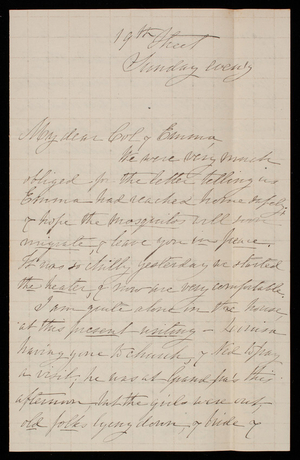 19th Street
Sunday eveng
My dear Col & Emma,
We were very much
obliged for the letter telling us
Emma had reached home safely
& hope the mosquitos will soon
migrate, & leave you in peace.
It was so chilly yesterday we started
the heater, & now are very comfortable.
I am quite alone in the house
at this present writing –
having gone to church, & Ned to pay
a visit; he was at Grandpa's this
afternoon, but the girls were out,
old folks lying down, &